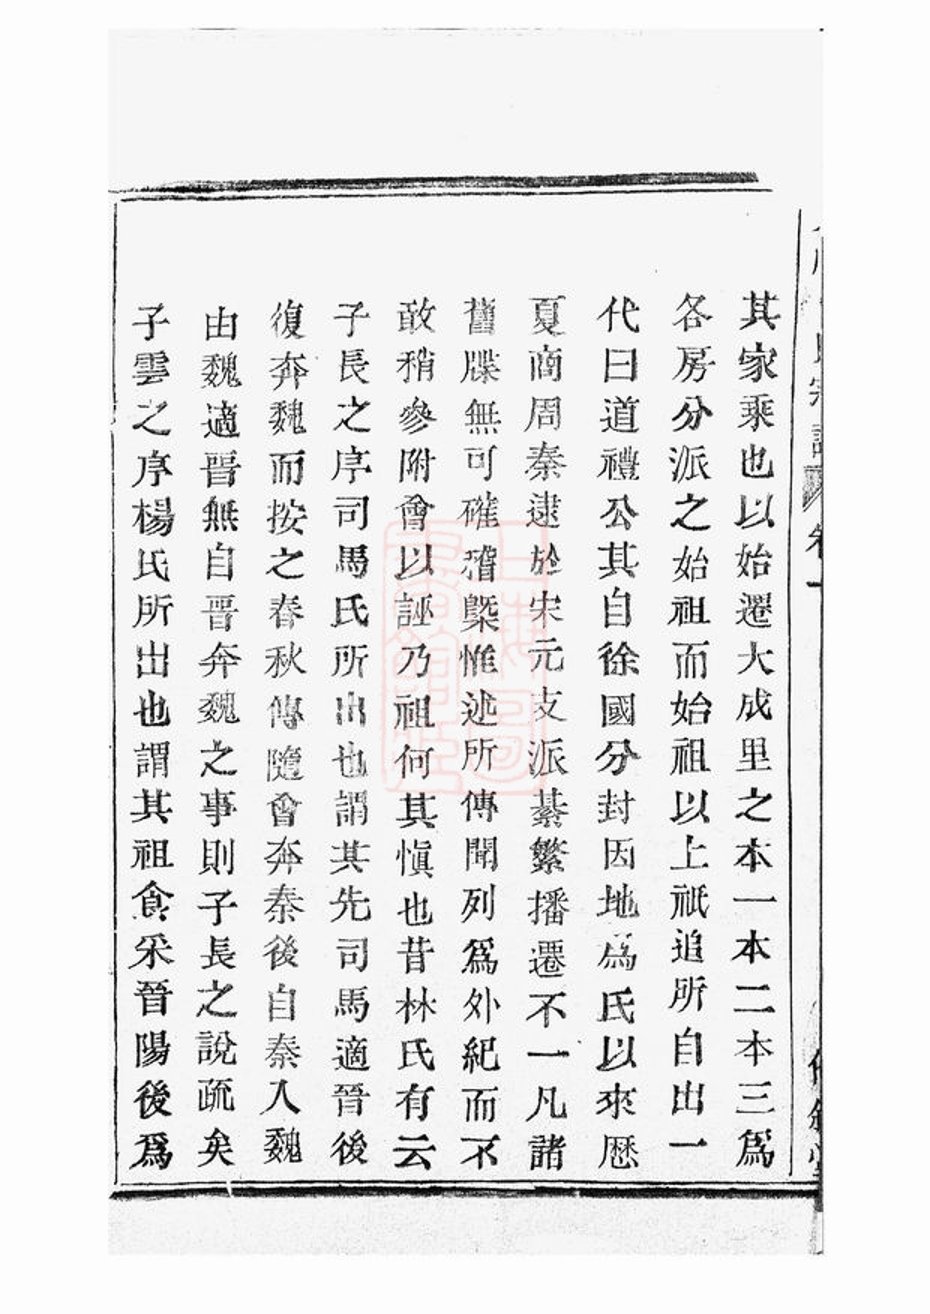 其家乘也以始遷大成里之本一本二本三爲
各房分派之始祖而始祖以上祇追所自出一
代曰道禮公其自徐國分封因地爲氏以來歴
夏商周秦逮於宋元支派綦繁播遷不一凡諸
舊牒無可確稽槩惟述所傳聞列爲外紀而不
敢稍參附會以誣乃祖何其愼也昔林氏有云
子長之序司馬氏所出也謂其先司馬適晉後
復奔魏而按之春秋傳隨會奔秦後自秦入魏
由魏適晉無自晉奔魏之事則子長之說疏矣
子雲之序楊氏所出也謂其祖食采晉陽後爲